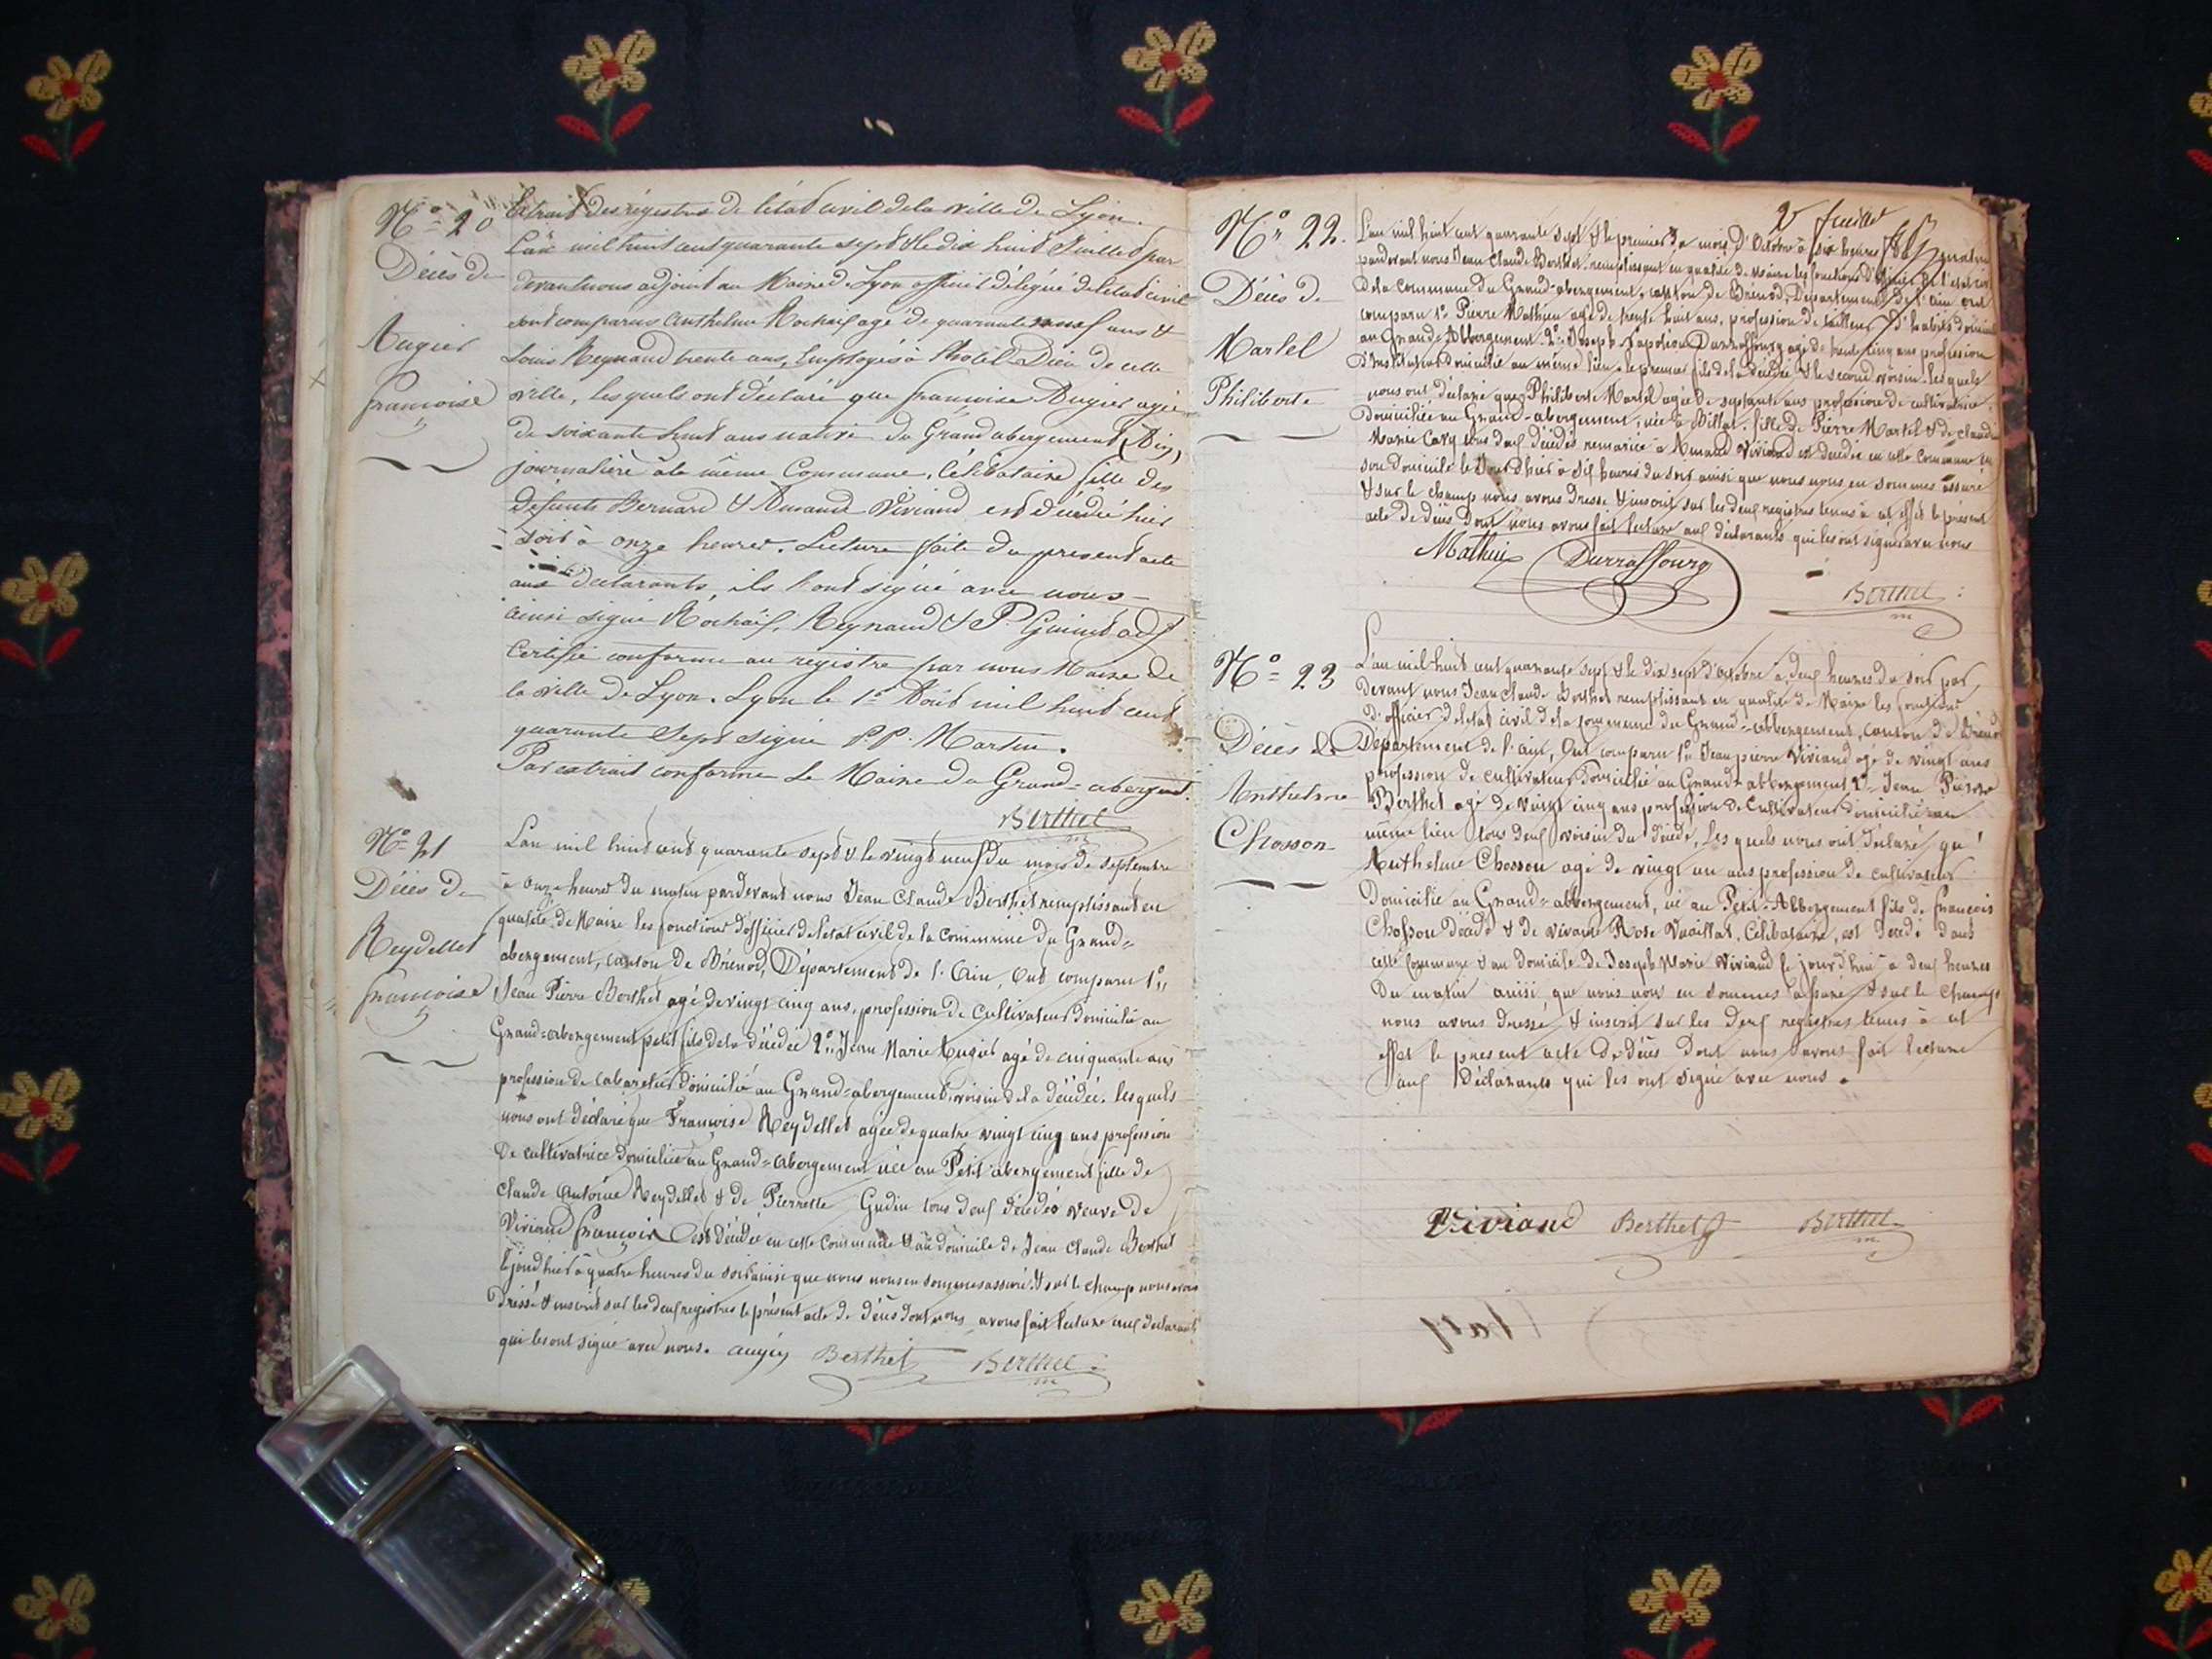 N.° 20
Décès de
Augier
françoise
Extrait des régistres de létat civil de la ville de Lyon.
L'an mil huit cent quarante sept & le dix huit Juillet par
devant nous adjoint au Maire de Lyon officier délégué de l'état civil
sont comparus Anthelme Rochaix agé de quarante neuf ans &
Louis Reynaud trente ans, Employés à l'hotel Dieu de cette
ville, lesquels ont déclaré que françoise Augier agée
de soixante huit ans native du Grand abergement (Ain)
journalière à la même Commune, Célibataire fille des
défunts Bernard & Viviand est décédée hier
soir à onze heures. Lecture faite du present acte
aux declarants, ils l'ont signé avec nous
ainsi signé Rochaix, Reynaud & P.
Certifié conforme au registre par nous Maire de
la ville de Lyon. Lyon le 1er Août mil huit cent
quarante Sept signé P.P. Martin.
Par extrait conforme Le Maire du Grand=abergemt.
Berthet
N° 21
Décès de
Reydellet
françoise
L'an mil huit cent quarante sept & le vingt neuf du mois de septembre
à onze heures du matin pardevant nous Jean Claude Berthet remplissant en
qualité de Maire les fonctions d'officier de l'état civil de la commune du Grand=
abergement, canton de Brénod, Département de l'Ain, Ont comparu 1°
Jean Pierre Berthet agé de vingt cinq ans, profession de cultivateur domicilié au
Grand=abergement petit fils de la décédée 2° Jean Marie Augier agé de cinquante ans
profession de cabaretier domicilié au Grand=abergement, voisin de la décédée. lesquels
nous ont déclaré que Françoise Reydellet agée de quatre vingt cinq ans profession
de cultivatrice domiciliée au Grand=abergement née au Petit abergement fille de
Claude Antoine Reydellet & de Pierrette Gudin tous deux décédés veuve de
Viviand françois est décédée en cette commune & au domicile de Jean Claude Berthet
le jourd'hier à quatre heures du soir ainsi que nous nous en sommes assuré. & sur le champ nous avons
dressé & inscrit sur les deux registres le présent acte de décès dont nous avons fait lecture aux déclarants
qui les ont signé avec nous. augier Berthet Berthet
N° 22.
Décès de
Martel
Philiberte
2e feuillet
L'an mil huit cent quarante sept & le premier du mois d'Octobre à six heures du matin
pardevant nous Jean Claude Berthet remplissant en qualité de Maire les fonctions d'officier de l'etat civil
de la commune du Grand=abergement, canton de Brénod, Departement de l'ain ont
comparu 1° Pierre Mathieu agé de trente huit ans, profession de tailleur d'habits domicilié
au Grand=Abbergement 2° Joseph Napoléon Durraffourg agé de trente cinq ans profession
d'Instituteur domicilié au même lieu. le premier fils de la décédée & le second voisin. lesquels
nous ont déclaré que Philiberte Martel agée de septante ans profession de cultivatrice
domiciliée au Grand=abergement, née à Billat. fille de Pierre Martel & de Claudine
Marie Cary tous deux décédés remariée à Viviand est decédée en cette commune en
son domicile le jourd'hier à six heures du soir ainsi que nous nous en sommes assuré
& sur le champ nous avons dressé & inscrit sur les deux registres tenus à cet effet le présent
acte de décès dont nous avons fait lecture aux déclarants qui les ont signé avec nous
Mathieu Durraffourg
Berthet
N° 23
Décès de
Anthelme
Chosson
L'an mil huit cent quarante sept & le dix sept d'octobre à deux heures du soir par
devant nous Jean Claude Berthet remplissant en qualité de Maire les fonctions
d'officier de l'etat civil de la commune du Grand=abbergement, canton de Brénod
Département de l'ain, Ont comparu 1° Jean pierre Viviand agé de vingt ans
profession de cultivateur domicilié au Grand=abbergement 2° Jean Pierre
Berthet agé de vingt cinq ans profession de cultivateur domicilié au
même lieu tous deux voisin du décédé, Les quels nous ont déclaré, qu'
Anthelme Chosson agé de vingt un ans profession de cultivateur
domicilié au Grand=abbergement, né au Petit=Abbergement fils de françois
Chosson décédé & de vivante Rose Vuaillat, Célibataire, est décédé dans
cette commune & au domicile de Joseph Marie Viviand le jourd'hui à deux heures
du matin ainsi, que nous nous en sommes assuré & sur le champ
nous avons dressé & inscrit sur les deux registres tenus à cet
effet le present acte de décès dont nous avons fait lecture
aux Déclarants qui les ont signé avec nous.
Viviand Berthet Berthet